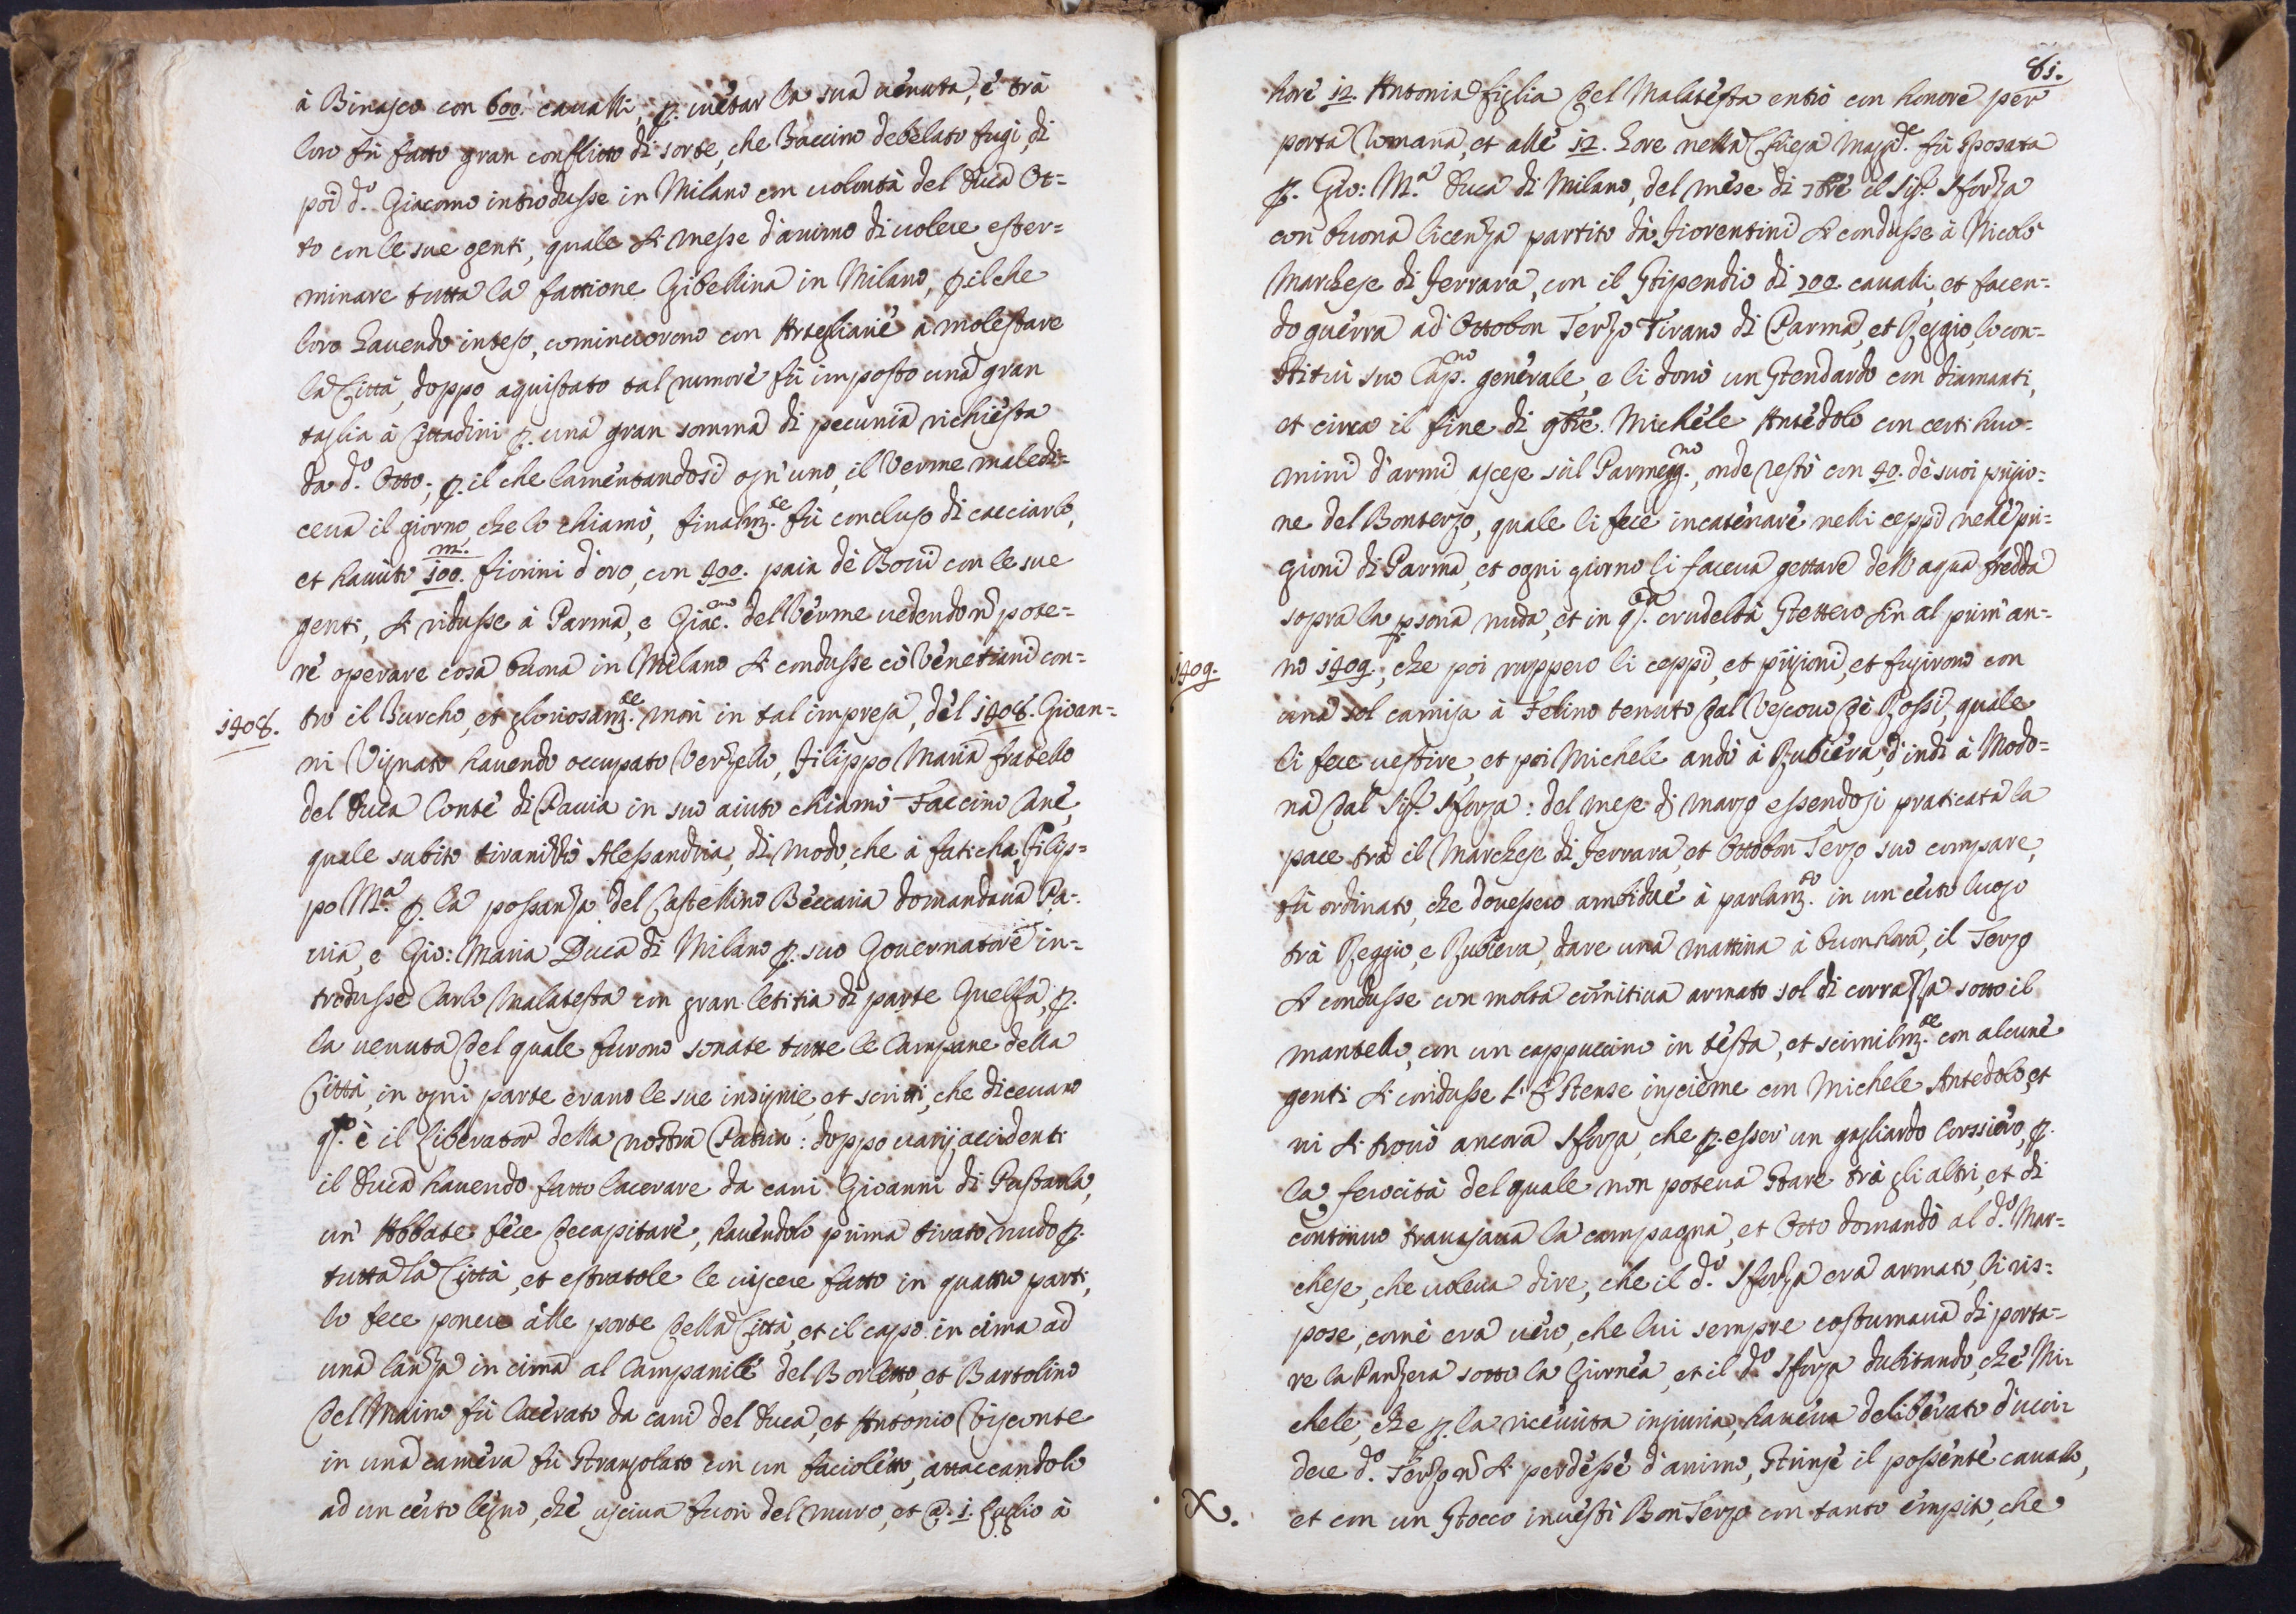 à Binasco con 600. caualli, p. uietar la sua uenuta, è trà
loro fù fatto gran conflitto di sorte, che Faccino debelato fugì, di
poi d.º Giacomo introdusse in Milano con uolontà del Duca Ot=
to con le sue genti, quale si messe d'animo di uolere ester=
minare tutta la fattione Gibellina in Milano, p. il che
loro hauendo inteso, cominciorono con Artegliarie à molestare
la Città, doppo aquistato tal rumore fù imposto una gran
taglia à Cittadini p. una gran somma di pecunia richiesta
da d.º Otto; p. il che lamentandosi ogn'uno, il Verme maledi=
ceua il giorno, che lo chiamò, finalm.te fù concluso di cacciarlo,
et hauuto 100.m. fiorini d'oro, con 400. paia dè Boui con le sue
genti, si ridusse à Parma, e Giac.mo del Verme uedendo nõ pote=
re operare cosa buona in Milano si condusse cõ Venetiani con=
1408. tro il Turcho, et gloriosam.te morì in tal impresa, del 1408. Gioan=
ni Vignato hauendo occupato Verzello, Filippo Maria fratello
del Duca Conte di Pauia in suo aiuto chiamò Faccino Cane,
quale subito tiranizò Alessandria, di modo, che à faticha Filip=
po M.ª p. la possanza del Castellino Beccaria domandaua Pa=
uia, e Gio: Maria Duca di Milano p. suo Gouernatore in=
trodusse Carlo Malatesta con gran letitia di parte Guelfa, p.
la uenuta del quale furono sonate tutte le Campane della
Città, in ogni parte erano le sue insignie, et scritti, che diceuano
q.sto è il Liberator della nostra Patria: doppo uarij accidenti
il Duca hauendo fatto lacerare da cani Giouanni di Pusterla,
un' Abbate fece decapitare, hauendolo prima tirato nudo p.
tutta la Città, et estratole le uiscere fatto in quattro parti,
lo fece ponere alle porte della Città, et il capo in cima ad
una lanza in cima al Campanile del Borletto, et Bartolino
del Maino fù lacerato da cani del Duca, et Antonio Visconte
in una camera fù strangolato con un facioletto, attaccandolo
ad un certo legno, che usciua fuori del muro, et @. 1. Luglio à
81.
hore 12. Antonia figlia del Malatesta entrò con honore per
porta Romana, et alle 12. hore nella Chiesa Mag.re fù sposata
p. Gio: M.ª Duca di Milano, del mese di 7bre il Sig.r Sforza
con buona licenza partito dà Fiorentini si condusse à Nicolò
Marchese di Ferrara, con il Stipendio di 700. caualli, et facen=
do guerra ad Ottobon Terzo Tirano di Parma, et Reggio, lo con=
stituì suo Cap.no generale, e li donò un Stendardo con diamanti,
et circa il fine di 9bre. Michele Antedolo con certi huo=
mini d'armi ascese sùl Parmegg.no, onde restò con 40. dè suoi prigio=
ne del Bonterzo, quale li fece incatenare nelli ceppi nelle pri=
gioni di Parma, et ogni giorno li faceua gettare dell'aqua fredda
sopra la psona nuda, et in q.ta crudeltà stettero sin al prim'an=
1409. no 1409., che poi ruppero li ceppi, et prigioni, et fugirono con
una sol camisa à Felino tenuto dal Vescouo dè Rossi, quale
li fece uestire, et poi Michele andò à Rubiera, d'indi à Modo=
na dal Sig.r Sforza: del mese di Marzo essendosi praticata la
pace trà il Marchese di Ferrara, et Ottobon Terzo suo compare,
fù ordinato, che douessero ambidue à parlam.to in un certo luogo
trà Reggio, e Rubiera, dare una mattina à buonhora, il Terzo
si condusse con molta comitiua armato sol di corrazza sotto il
mantello, con un cappuccino in testa, et scimilm.te con alcune
genti si condusse l'Estense inscieme con Michele Antedolo, et
ui si trouò ancora Sforza, che p. esser' un gagliardo Corssiero, p.
la ferocità del quale non poteua stare trà gli altri, et di
continuo trauagliaua la campagna, et Otto domandò al d.º Mar=
chese, che uoleua dire, che il d.º Sforza era armato, li ris=
pose, come era uero, che lui sempre costumaua di porta=
re la Panzera sotto la Giornea, et il d.º Sforza dubitando, che Mi=
chele, che p. la riceuuta ingiuria, haueua deliberato d'ucci=
dere d.º Terzo nõ si perdesse d'animo, strinse il possente cauallo,
X. et con un stocco inuestì Bon Terzo con tanto empito, che